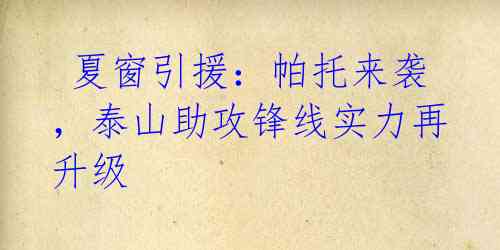 夏窗引援：帕托来袭
，泰山助攻锋线实力再
升级